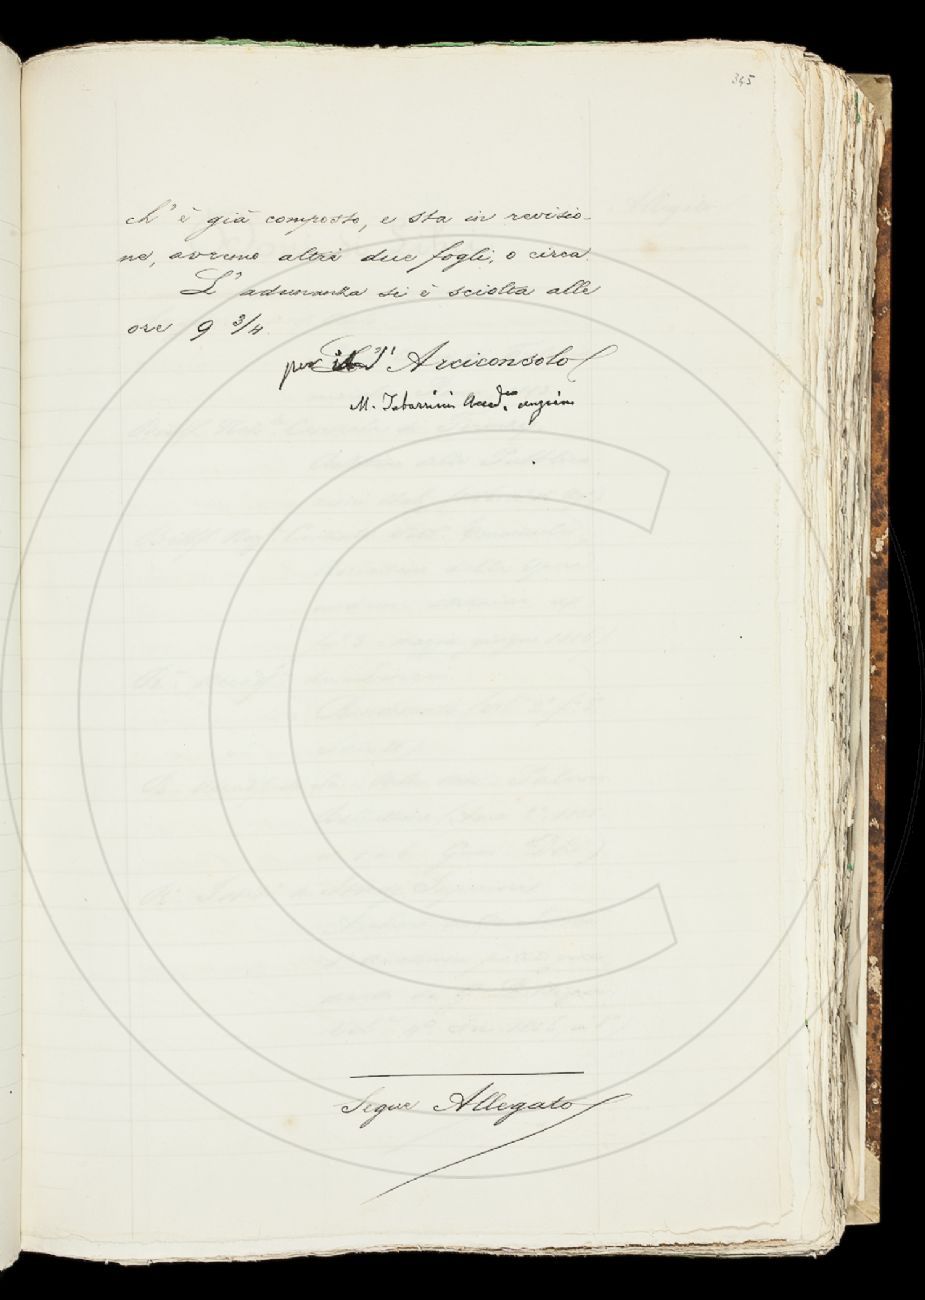 345
ch' è già composto, e sta in revisio-
ne, avremo altri due fogli, o circa.
L' adunanza si è sciolta alle
ore 9 3/4.
per l' Arciconsolo
M. Tabarrini Accad.co anziano
Segue Allegato